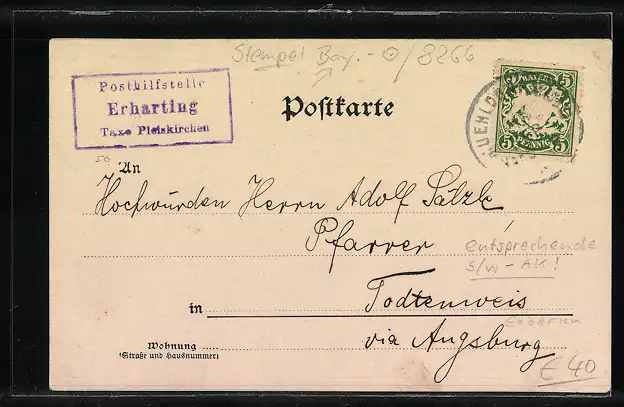 Stempel Bay. - /8266
Posthilfstelle
Erharting
Taxe Pleiskirchen
Postkarte
BAYERN
5 5
PFENNIG
50
An
Hochwürden Herrn Adolf Sätzle
Pfarrer
entsprechende
s/w - AK!
in Todtenweis
via Augsburg
Wohnung
(Straße und Hausnummer)
€ 40